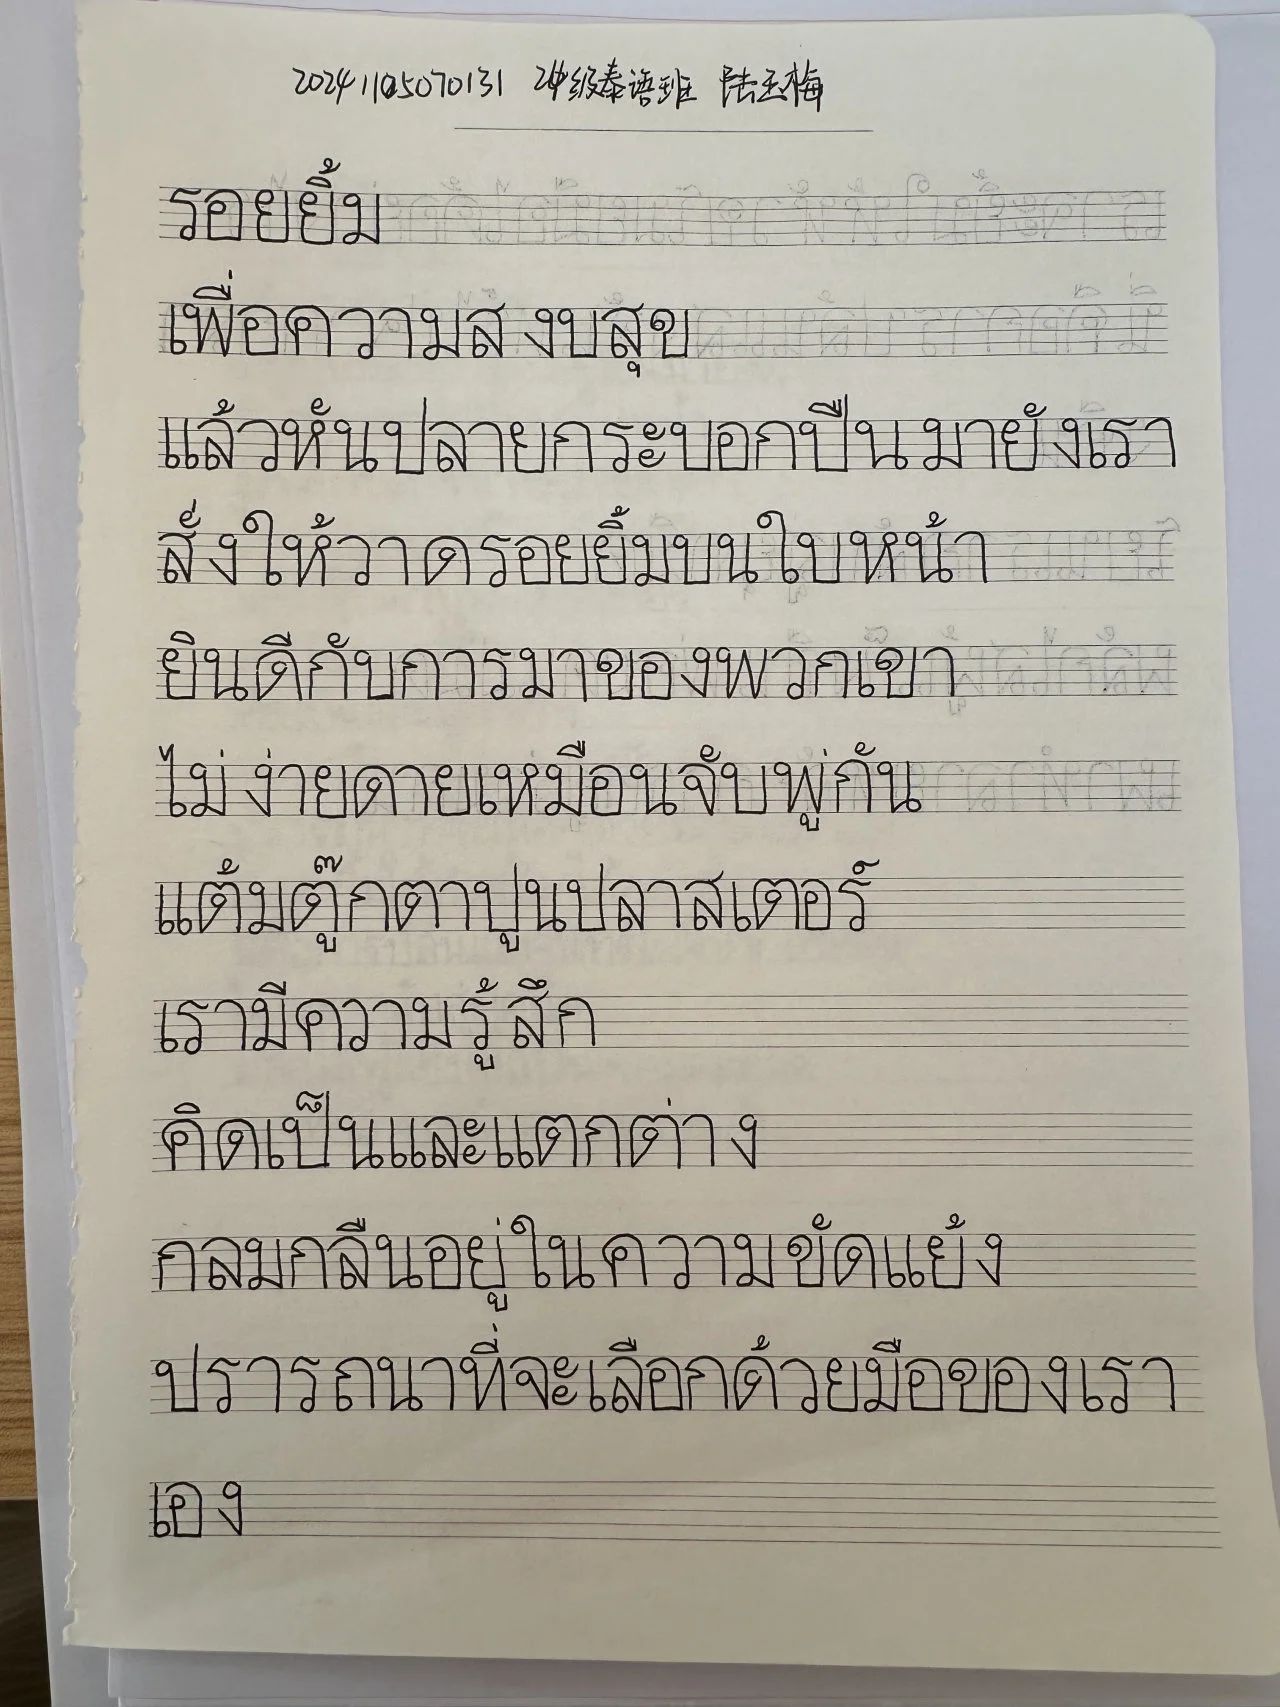 20241105070131 24级泰语班 陆玉梅
รอยยิ้ม
เพื่อความสงบสุข
แล้วหันปลายกระบอกปืนมายังเรา
สั่งให้วาดรอยยิ้มบนใบหน้า
ยินดีกับการมาของพวกเขา
ไม่ง่ายดายเหมือนจับพู่กัน
แต้มตุ๊กตาปูนปลาสเตอร์
เรามีความรู้สึก
คิดเป็นและแตกต่าง
กลมกลืนอยู่ในความขัดแย้ง
ปรารถนาที่จะเลือกด้วยมือของเรา
เอง